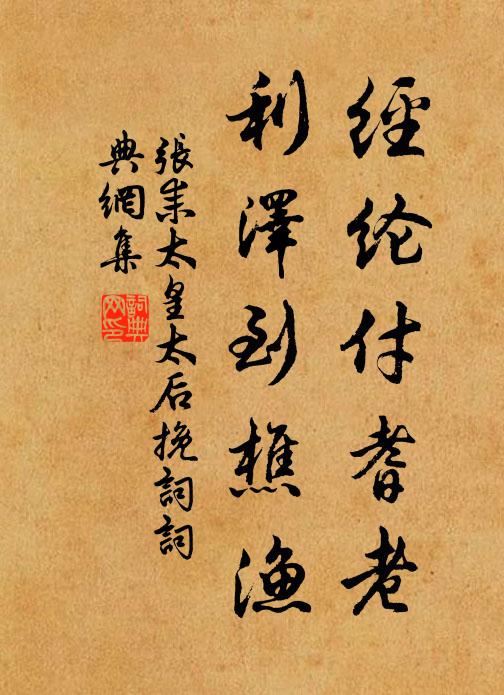 經纶付耆老
利澤到樵漁
張耒太皇太后挽詞詞
典網集
詞典
网印